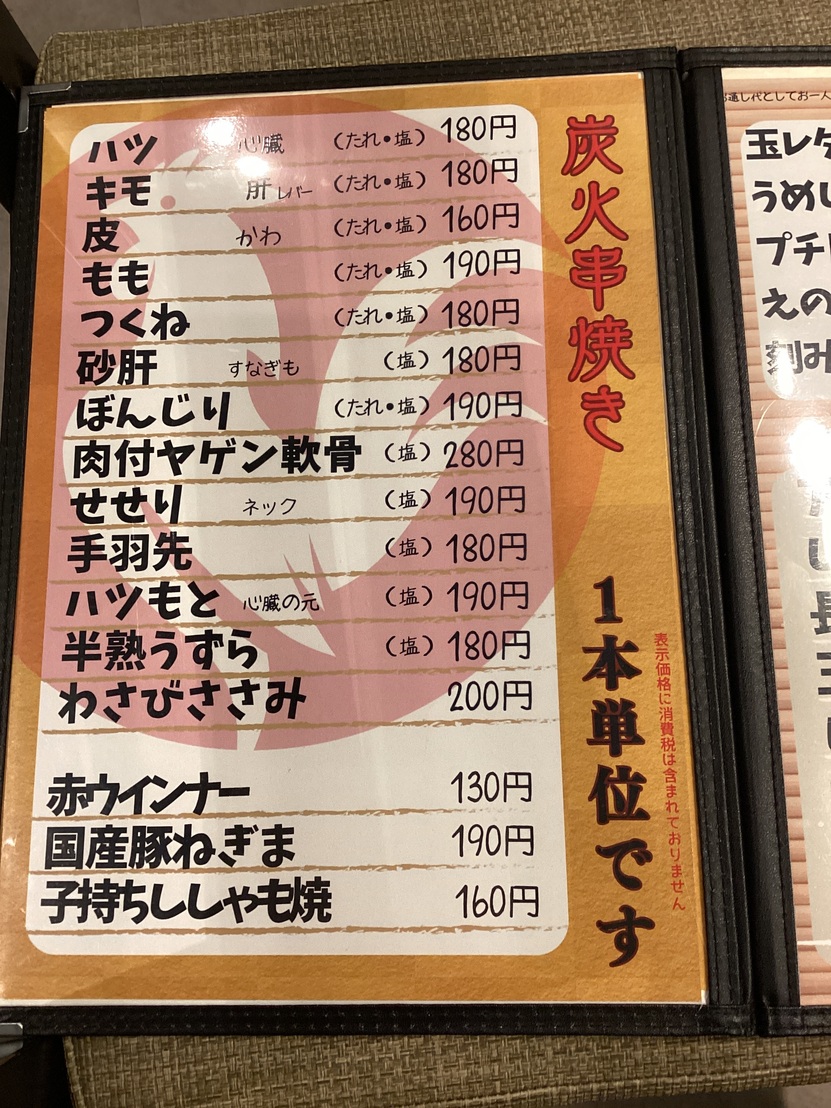 炭火串焼き
ハツ 心臓 （たれ・塩） 180円
キモ 肝 レバー （たれ・塩） 180円
皮 かわ （たれ・塩） 160円
もも （たれ・塩） 190円
つくね （たれ・塩） 180円
砂肝 すなぎも （塩） 180円
ぼんじり （たれ・塩） 190円
肉付ヤゲン軟骨 （塩） 280円
せせり ネック （塩） 190円
手羽先 （塩） 180円
ハツもと 心臓の元 （塩） 190円
半熟うずら （塩） 180円
わさびささみ 200円
赤ウインナー 130円
国産豚ねぎま 190円
子持ちししゃも焼 160円
1本単位です
表示価格に消費税は含まれておりません
通し代としてお一人
玉レタ
うめ
プチ
えの
刻み